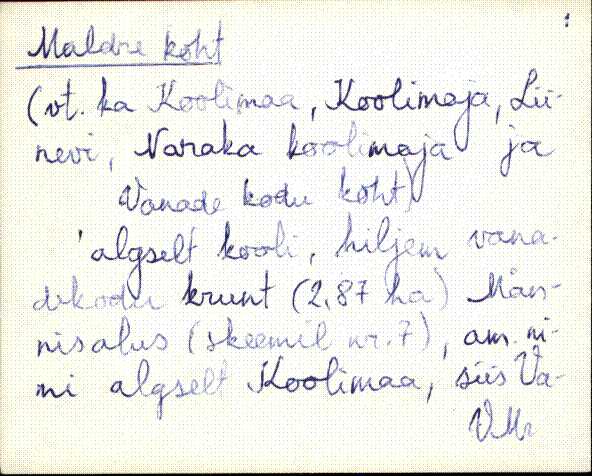 Maldre koht
(vt. ka Koolimaa, Koolimaja, Lii-
nevi, Naraka koolimaja ja
Vanade kodu koht)
'algselt kooli, hiljem vana-
dekodu krunt (2,87 ha) Män-
nisalus (skeemil nr. 7), am. ni-
mi algselt Koolimaa, siis Va-
VMr